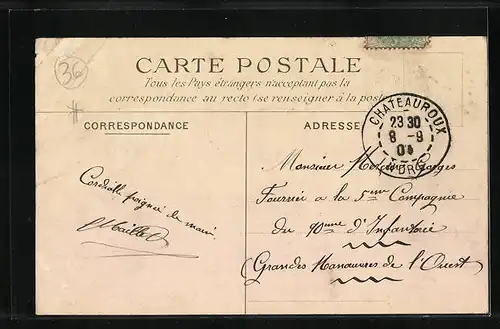 36
CARTE POSTALE
Tous les Pays étrangers n'acceptant pas la
correspondance au recto (se renseigner à la poste
CORRESPONDANCE
ADRESSE
CHATEAUROUX
23 30
8 - 9
INDRE
Cordialle poignée de main
Monsieur Georges
Fourrier a la 5eme Compagnie
du 90eme d'Infanterie
(Grandes Manœuvres de l'Ouest)